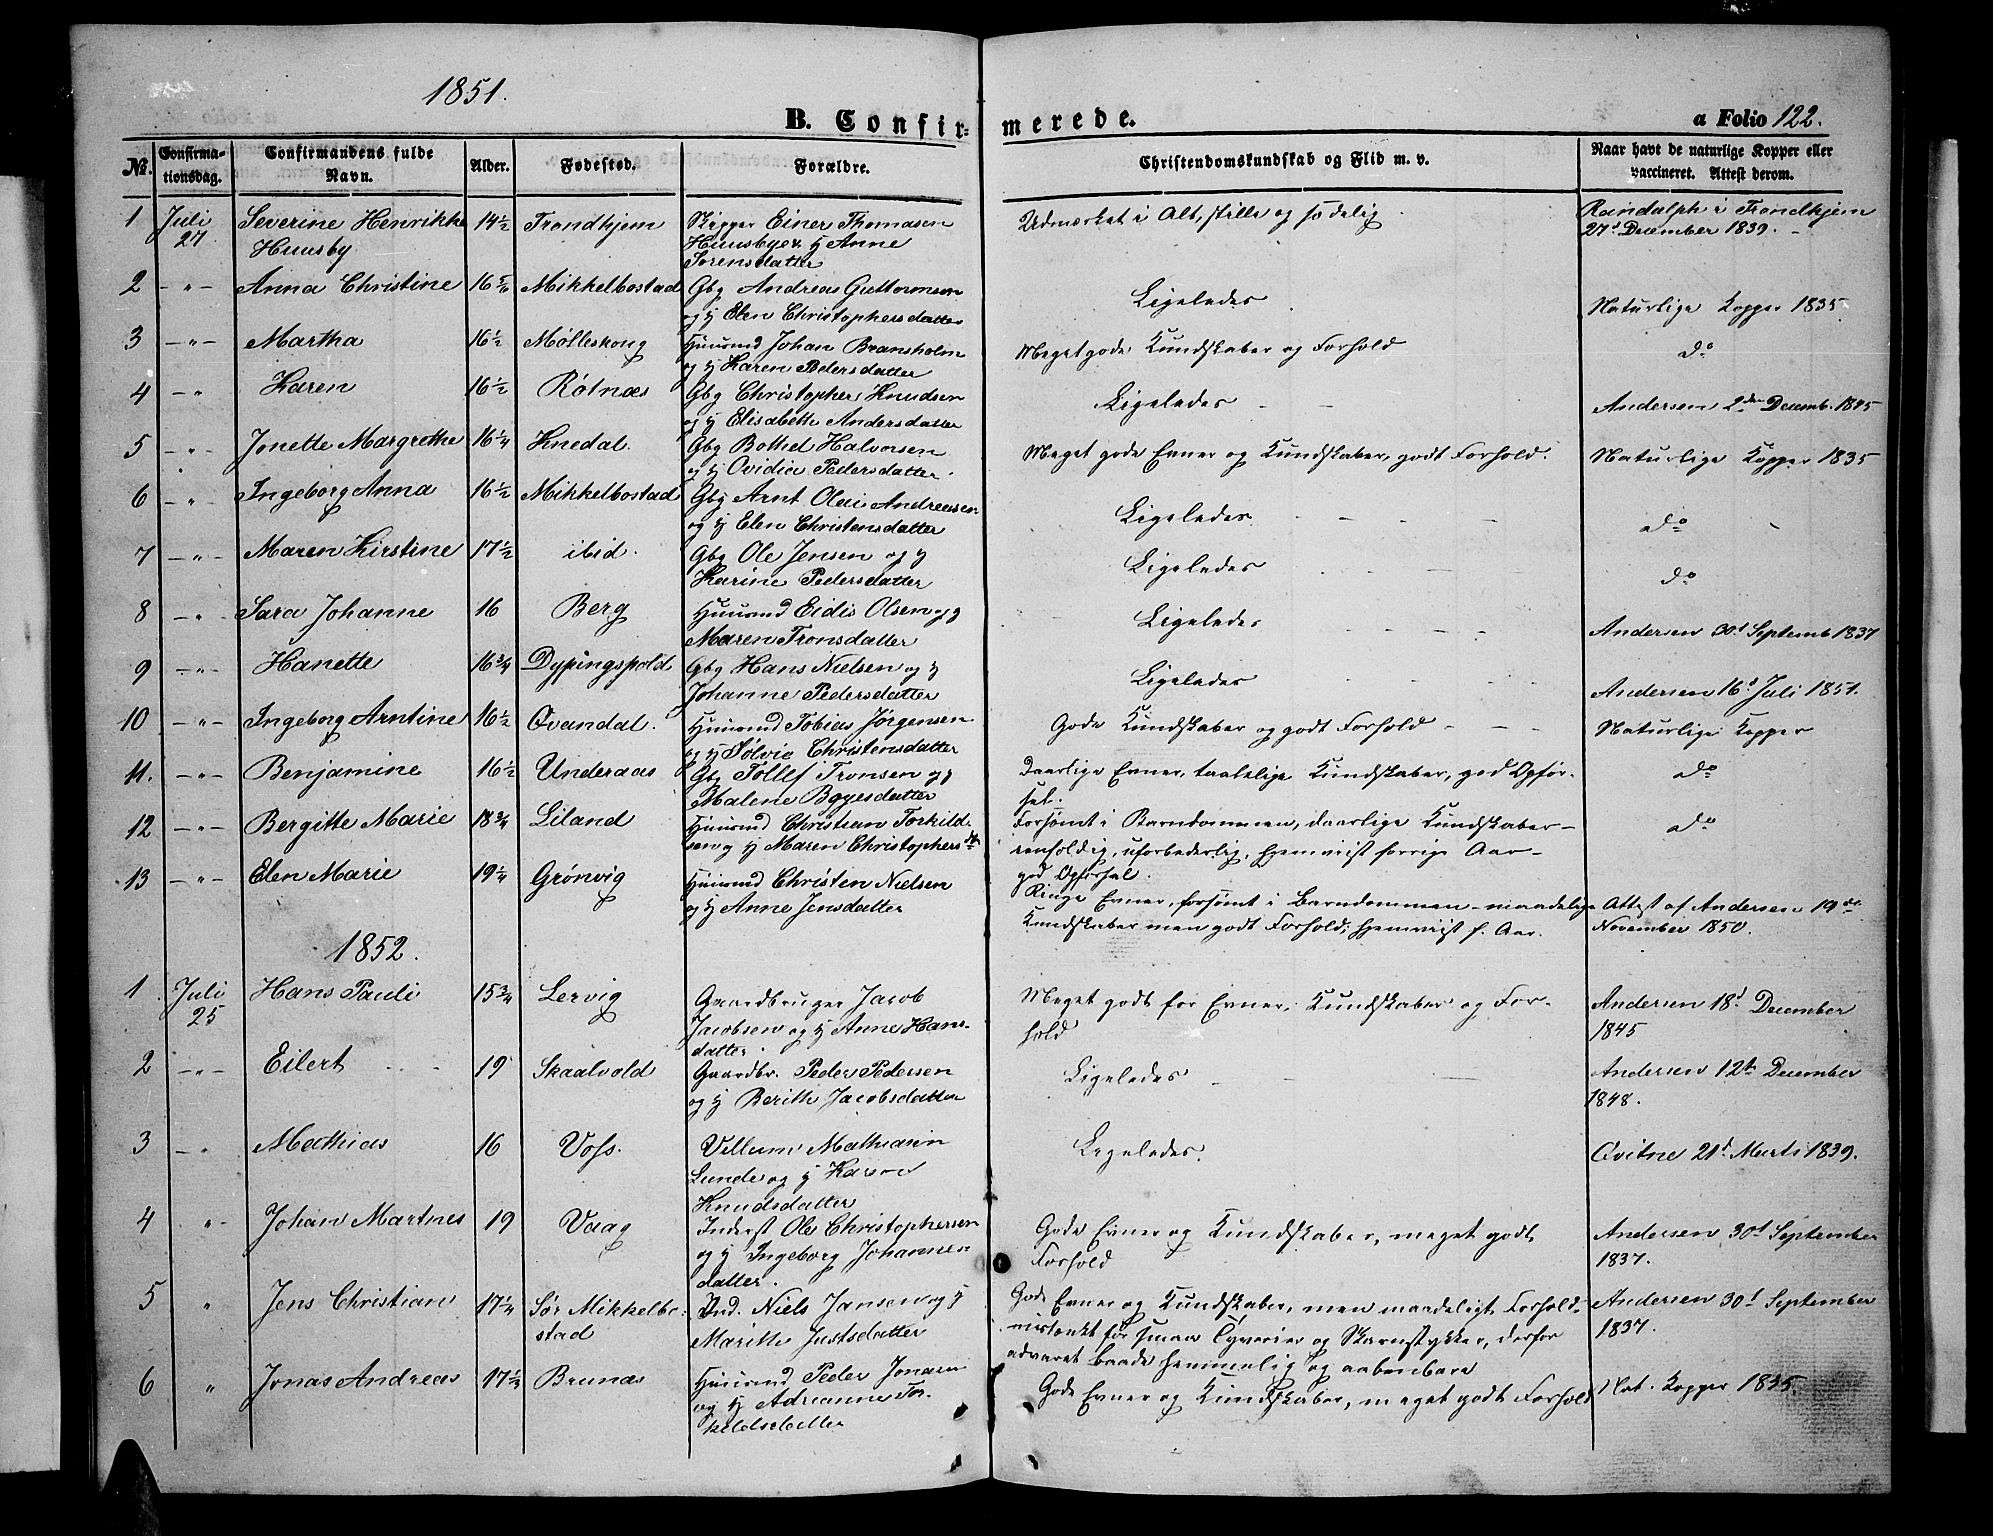 1851.
B. Confirmerede.
a Folio 122.
No. Confirmationsdag. Confirmandens fulde Navn. Alder. Fødested. Forældre. Christendomskundskab og Flid m. v. Naar havt de naturlige Kopper eller vaccineret. Attest derom.
1 Juli 27 Severine Henrikke Huusby 14½ Trondhjem Skipper Einer Thomasen Huusbye & H Anne Sorensdatter Udmærket i Alt, stille og sædelig Randalph i Trondhjem 27d December 1839.
2 -"- Anna Christine 16 5/6 Mikkelbostad Gbg Andreas Guttormsen og H Elen Christophersdatter Ligeledes Naturlige Kopper 1835
3 -"- Martha 16½ Mølleskong Huusmd Johan Bransholm og H Karen Pedersdatter Meget gode Kundskaber og Forhold do
4 -"- Karen 16½ Rötnæs Gbg Christopher Knudsen og H Elisabeth Andersdatter Ligeledes Andersen 2den Decemb. 1845
5 -"- Jonette Margrethe 16¼ Knedal. Gbg Bottel Halvorsen og H Ovidia Pedersdatter. Meget gode Evner og Kundskaber, godt Forhold. Naturlige Kopper 1835
6 -"- Ingeborg Anna 16½ Mikkelbostad Gbg Arnt Olai Andreasen og H Elen Christensdatter Ligeledes do
7 -"- Maren Kirstine 17½ ibid. Gbg Ole Jensen og H Karine Pedersdatter Ligeledes do
8 -"- Sara Johanne 16 Berg Huusmd Eidis Olsen og H Maren Tronsdatter Ligeledes Andersen 30d Septemb 1837
9 -"- Hanette 16¾ Dypingspold Gbg Hans Nielsen og H Johanne Pedersdatter Ligeledes Andersen 16d Juli 1851.
10 -"- Ingeborg Arntine 16½ Qvandal. Huusmd Tobias Jørgensen og H Sølvie Christensdatter Gode Kundskaber og godt Forhold Naturlige Kopper
11. -"- Benjamine 16½ Underaas Gbg Tollef Tronsen og H Malene Boyesdatter Daarlige Evner, taalelige Kundskaber, god Opførsel. do
12 -"- Bergitte Marie 18¾ Liland Huusmd Christian Torkildsen og H Maren Christophersdtr Forsømt i Barndommen, daarlige Kundskaber enfoldig, uforbederlig, hjemviist forrige Aar god Opførsel. do
13 -"- Elen Marie 19¼ Grønvig Huusmd Christen Nielsen og H Anne Jensdatter Ringe Evner, forsømt i Barndommen maadelige Kundskaber men godt Forhold; hjemviist f. Aar. Attest af Andersen 19de November 1850.
1852.
1 Juli 25 Hans Pauli 15¾ Lervig Gaardbruger Jacob Jacobsen og H Anne Hansdatter. Meget godt for Evner, Kundskaber og Forhold Andersen 18d December 1845
2 -"- Eilert 19 Skaalvold Gaardbr. Peder Pedersen og H Berith Jacobsdatter Ligeledes Andersen 12te December 1848.
3 -"- Mathias 16 Voss. Villum Mathiasen Lunde og H Karen Knudsdatter Ligeledes. Qvitne 21d Marts 1839.
4 " Johan Martnes 19 Vaag Inderst Ole Christophersen og H Ingeborg Johansendatter. Gode Evner og Kundskaber, meget godt Forhold Andersen 30d September 1837.
5 " Jens Christian 17¼ Sør Mikkelbostad Ind. Niels Jansen og H Marith Justsdatter Gode Evner og Kundskaber, men maadeligt Forhold; mistænkt for smaa Tyverier og Skarnstykker, derfor advaret baade hemmelig og aabenbare Andersen 30d September 1837.
6 " Jonas Andreas 17½ Brunæs Huusmd Peder Jonasen og H Adrianne Torkeldsdatter Gode Evner og Kundskaber, meget godt Forhold Nat. Kopper 1835.